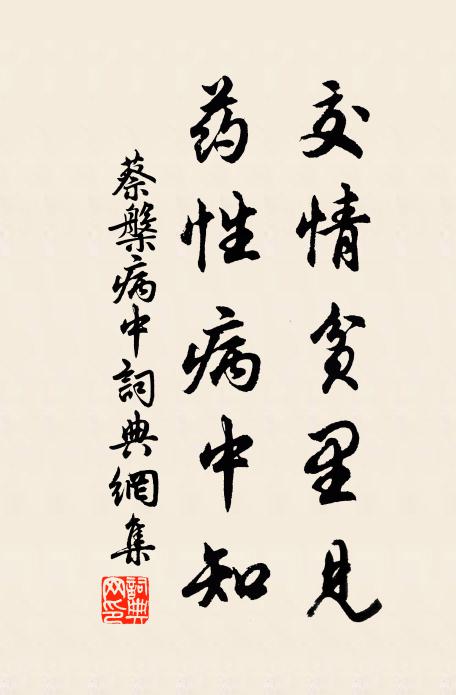 交情贫里見
药性病中知
蔡槃病中詞典網集
詞典網印